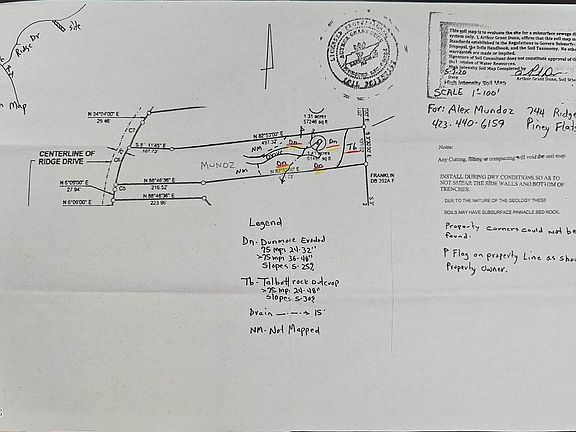 Ridge Dr
site
n Map
This soil map is to evaluate the site for a subsurface sewage di
system only. I, Arthur Grant Dunn, affirm that this soil map
Standards established in the Regulations to Govern Subsurf
Disposal, the Soils Handbook, and Soil Taxonomy. No othe
warranties are made or implied.
Signature of Soil Consultant does not constitute approval of
of Water Resources.
High Intensity Soil Map Completed by
5-7-20
Date
Arthur Grant Dunn, Soil Scien
High Intensity Soil Map
SCALE 1"-100'
For: Alex Mundoz 744 Ridge
423-440-6159 Piney Flat
Notes:
Any Cutting, filling or compacting will void the soil map.
INSTALL DURING DRY CONDITIONS SO AS TO
NOT SMEAR THE SIDE WALLS AND BOTTOM OF
TRENCHES.
DUE TO THE NATURE OF THE GEOLOGY THESE
SOILS MAY HAVE SUBSURFACE PINNACLE BED ROCK.
Property corners could not be
found.
P Flag on property Line as show
Property Owner.
N 34°04'00" E
29.46'
CENTERLINE OF
RIDGE DRIVE
N 6°09'00" E
27.94'
N 6°09'00" E
N 88°46'36" E
216.52'
N 88°46'36" E
223.96'
MUNOZ
N 82°53'00" E
497.32'
1.31 acres
57246 sq ft
NM
NM
Dn
Dn
Dn
Dn
P
Tb
FRANKLIN
DB 392A P
Legend
Dn- Dunmore Eroded
75 mpi 24-32"
>75 mpi 36-48"
Slopes 5-25%
Tb- Talbott rock outcrop
>75 mpi 24-48"
slopes 5-30%
Drain 15'
NM- Not Mapped